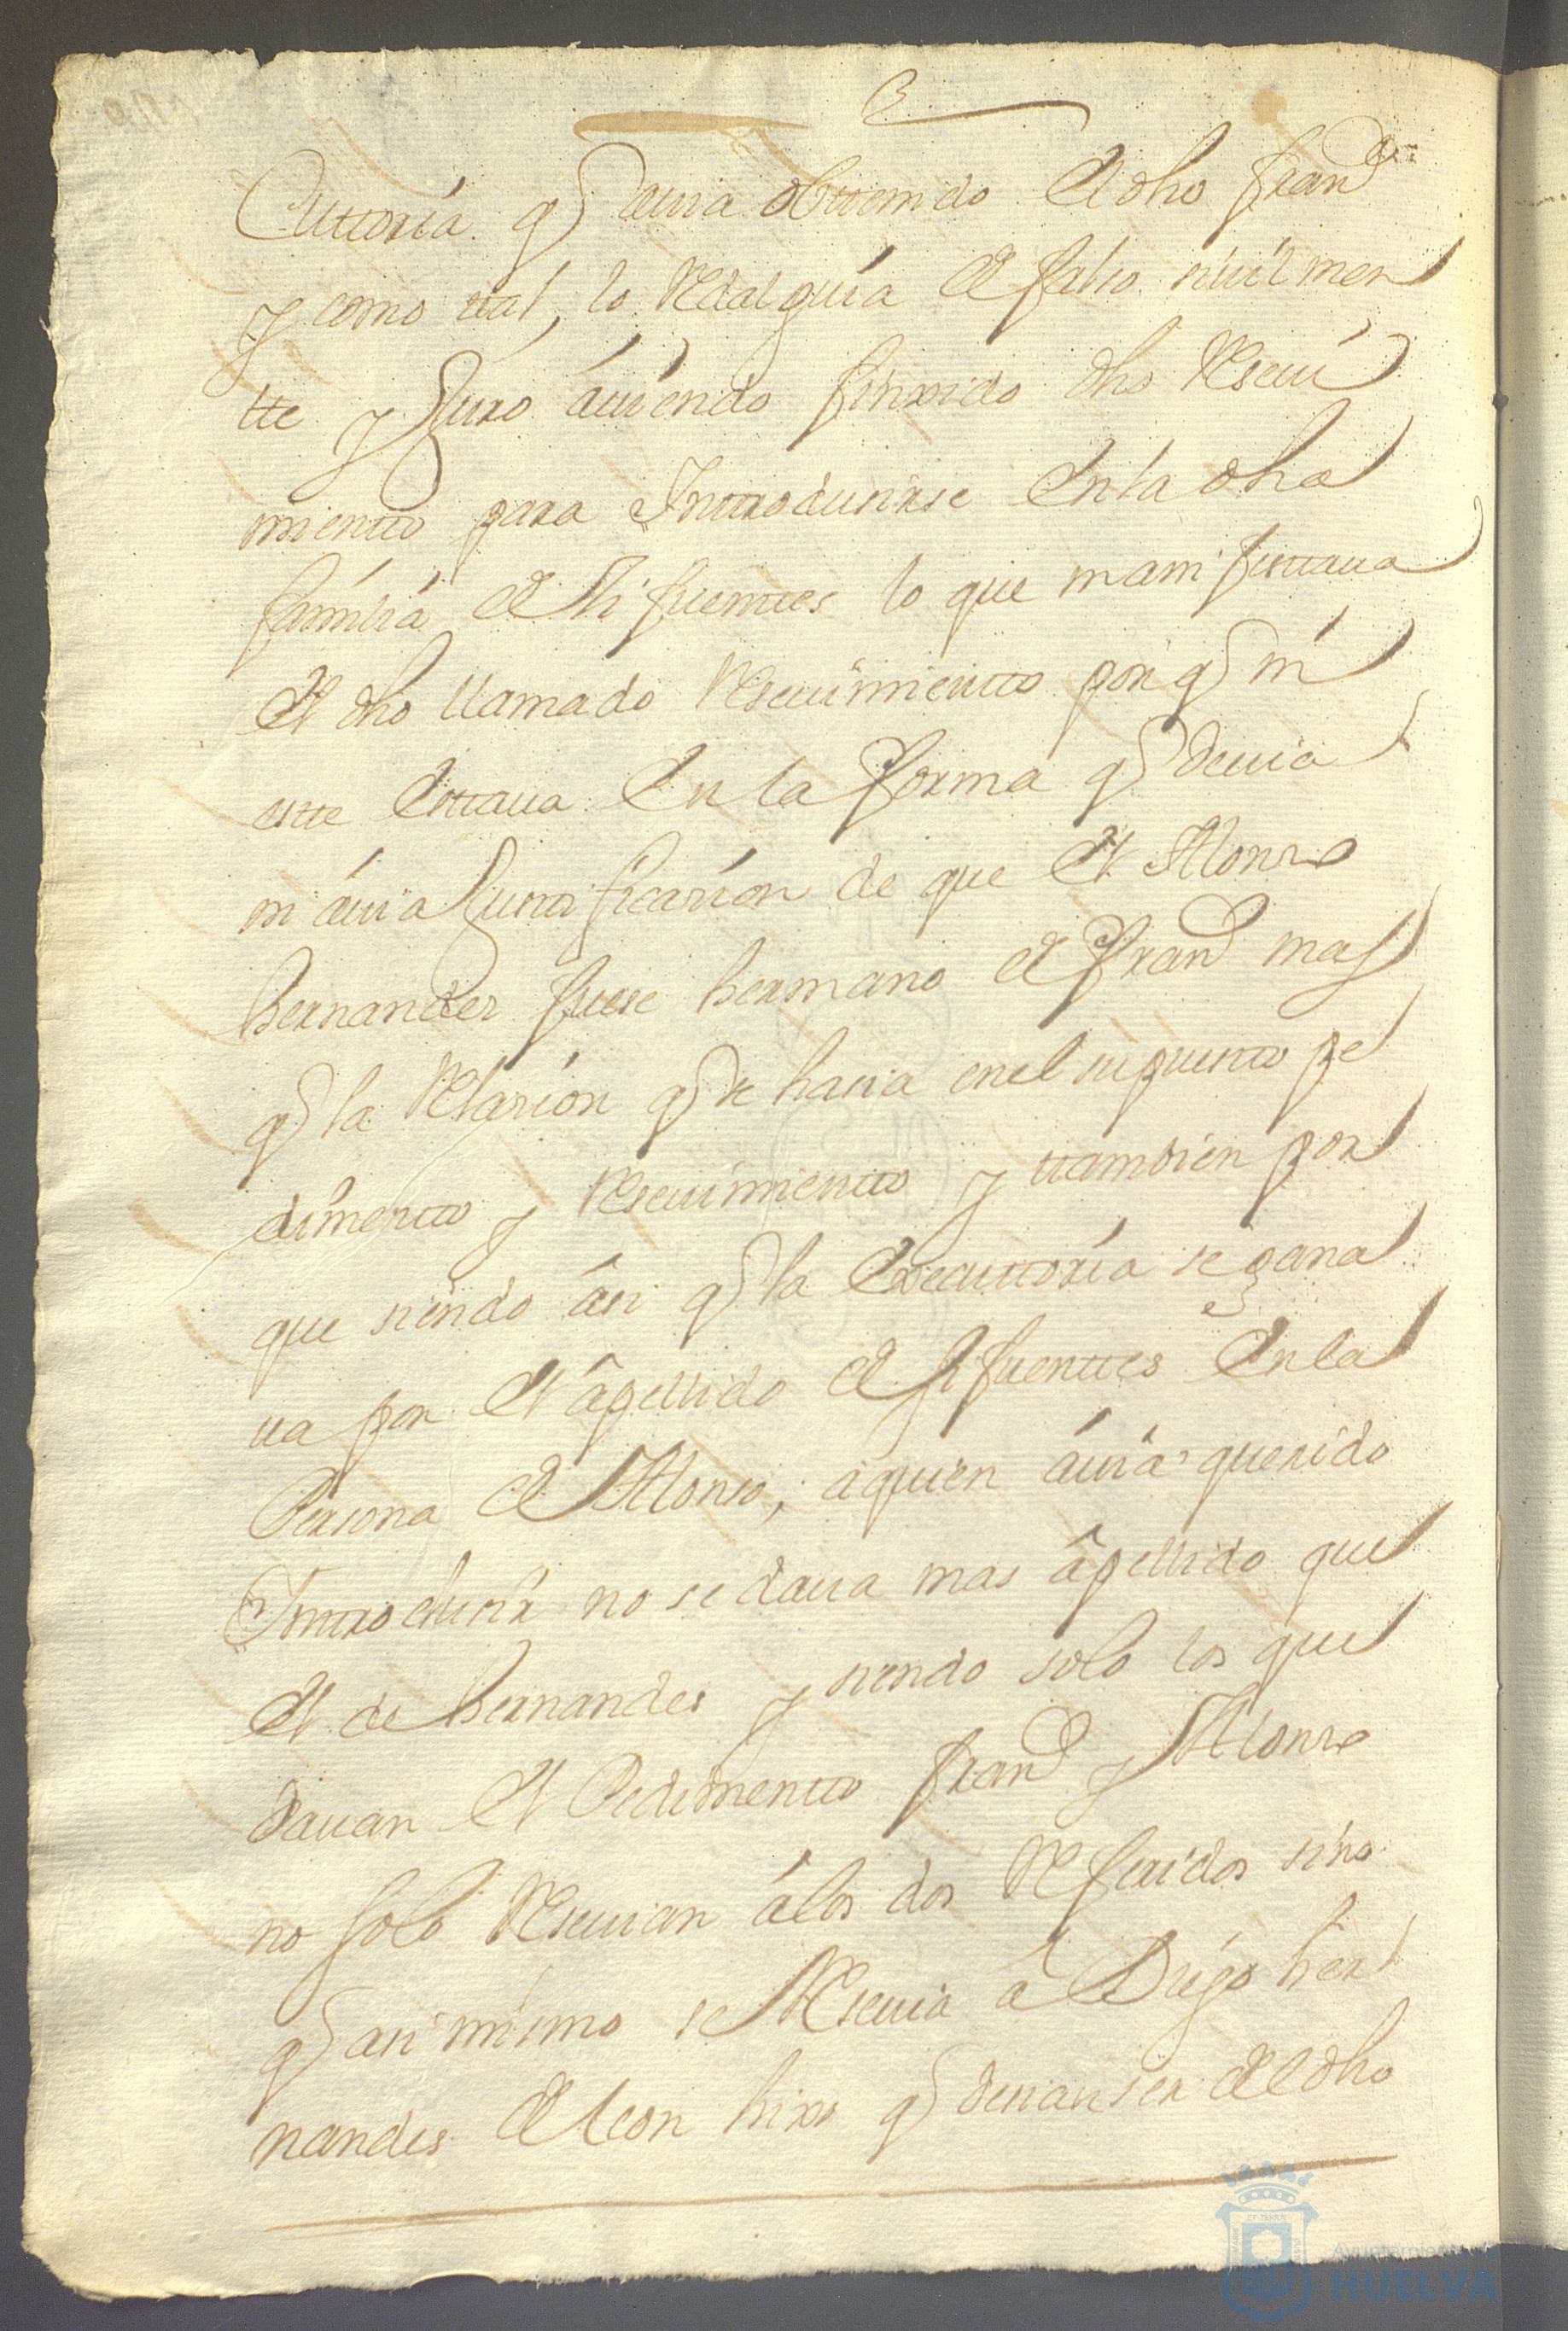 Cuttoria q auia obttenido El dho fran.co
y como tal, lo Redalguia de falso siuilmen
tte y Juro áuiendo finxido dho Reseui
mientto para Inttrodusirse En la dha
família de Sifuenttes lo que manifesttaua
El dho llamado Reseuimientto por q ni
estte Esttaua En la forma q deuia
ni áuia Justificasion de que El Alonso
hernandes fuese hermano de fran.co mas
q la Relasion q se hasia en el supuestto pe
dimentto y Reseuimientto y ttambien por
que siendo ási q la Executtoria se gana
ua por El ápellido de Sifuenttes En la
Persona de Alonso, a quien áuiá querido
Inttrodusir no se daua mas ápellido que
El de hernandes y siendo solo los que
dauan El Pedimentto fran.co y Alonso
no solo Reseuian á los dos Referidos sino
q asi mismo se Reseuia á Diego her
nandes de leon hixo q desian ser de el dho
Ayuntamiento de
HUELVA